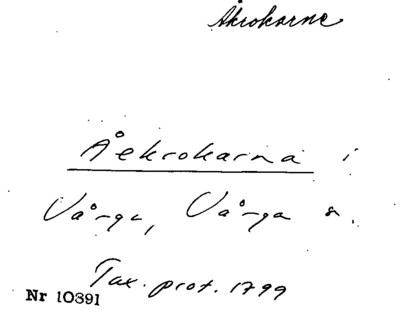 Åkrokarne
Åekrokarna i
Vånga, Vånga s.
Tax. prot. 1799
Nr 10391